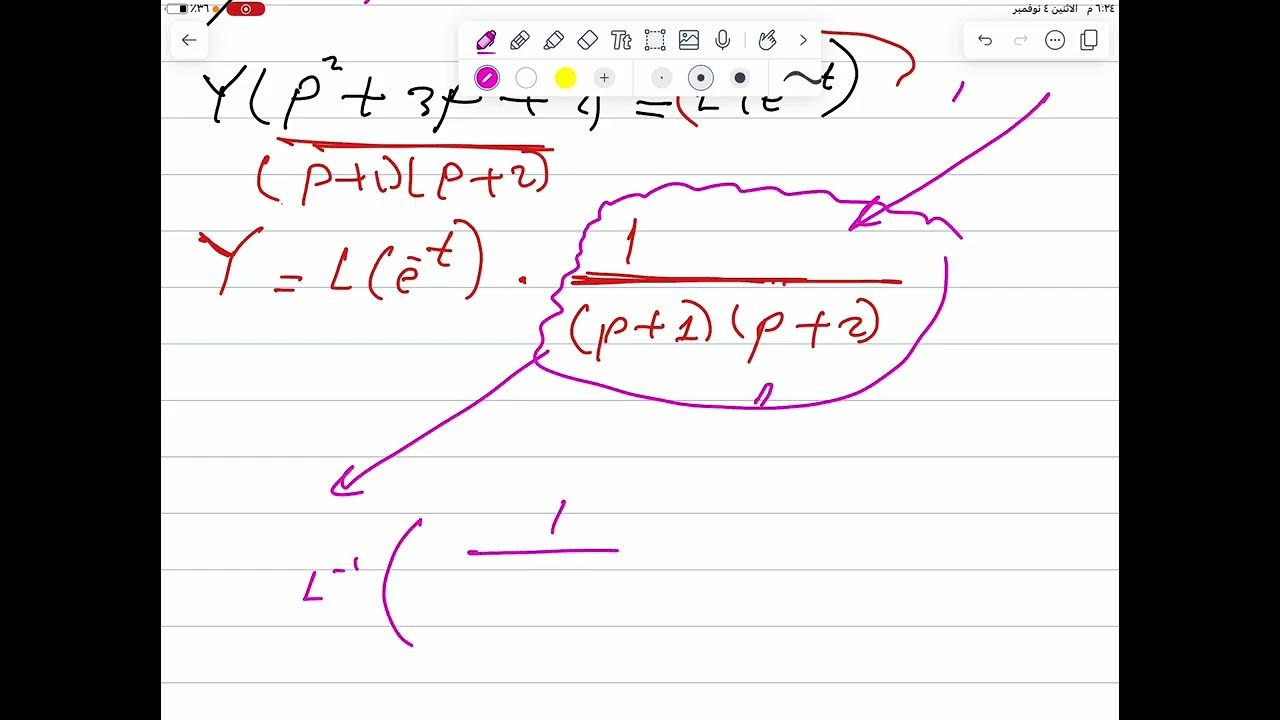 ٪٣٦ ٦:٢٤ م الاثنين ٤ نوفمبر
Tt
Y(p² + 3p +
(p+1)(p+2)
Y = L(e⁻ᵗ) · 1/((p+1)(p+2))
L⁻¹( 1/